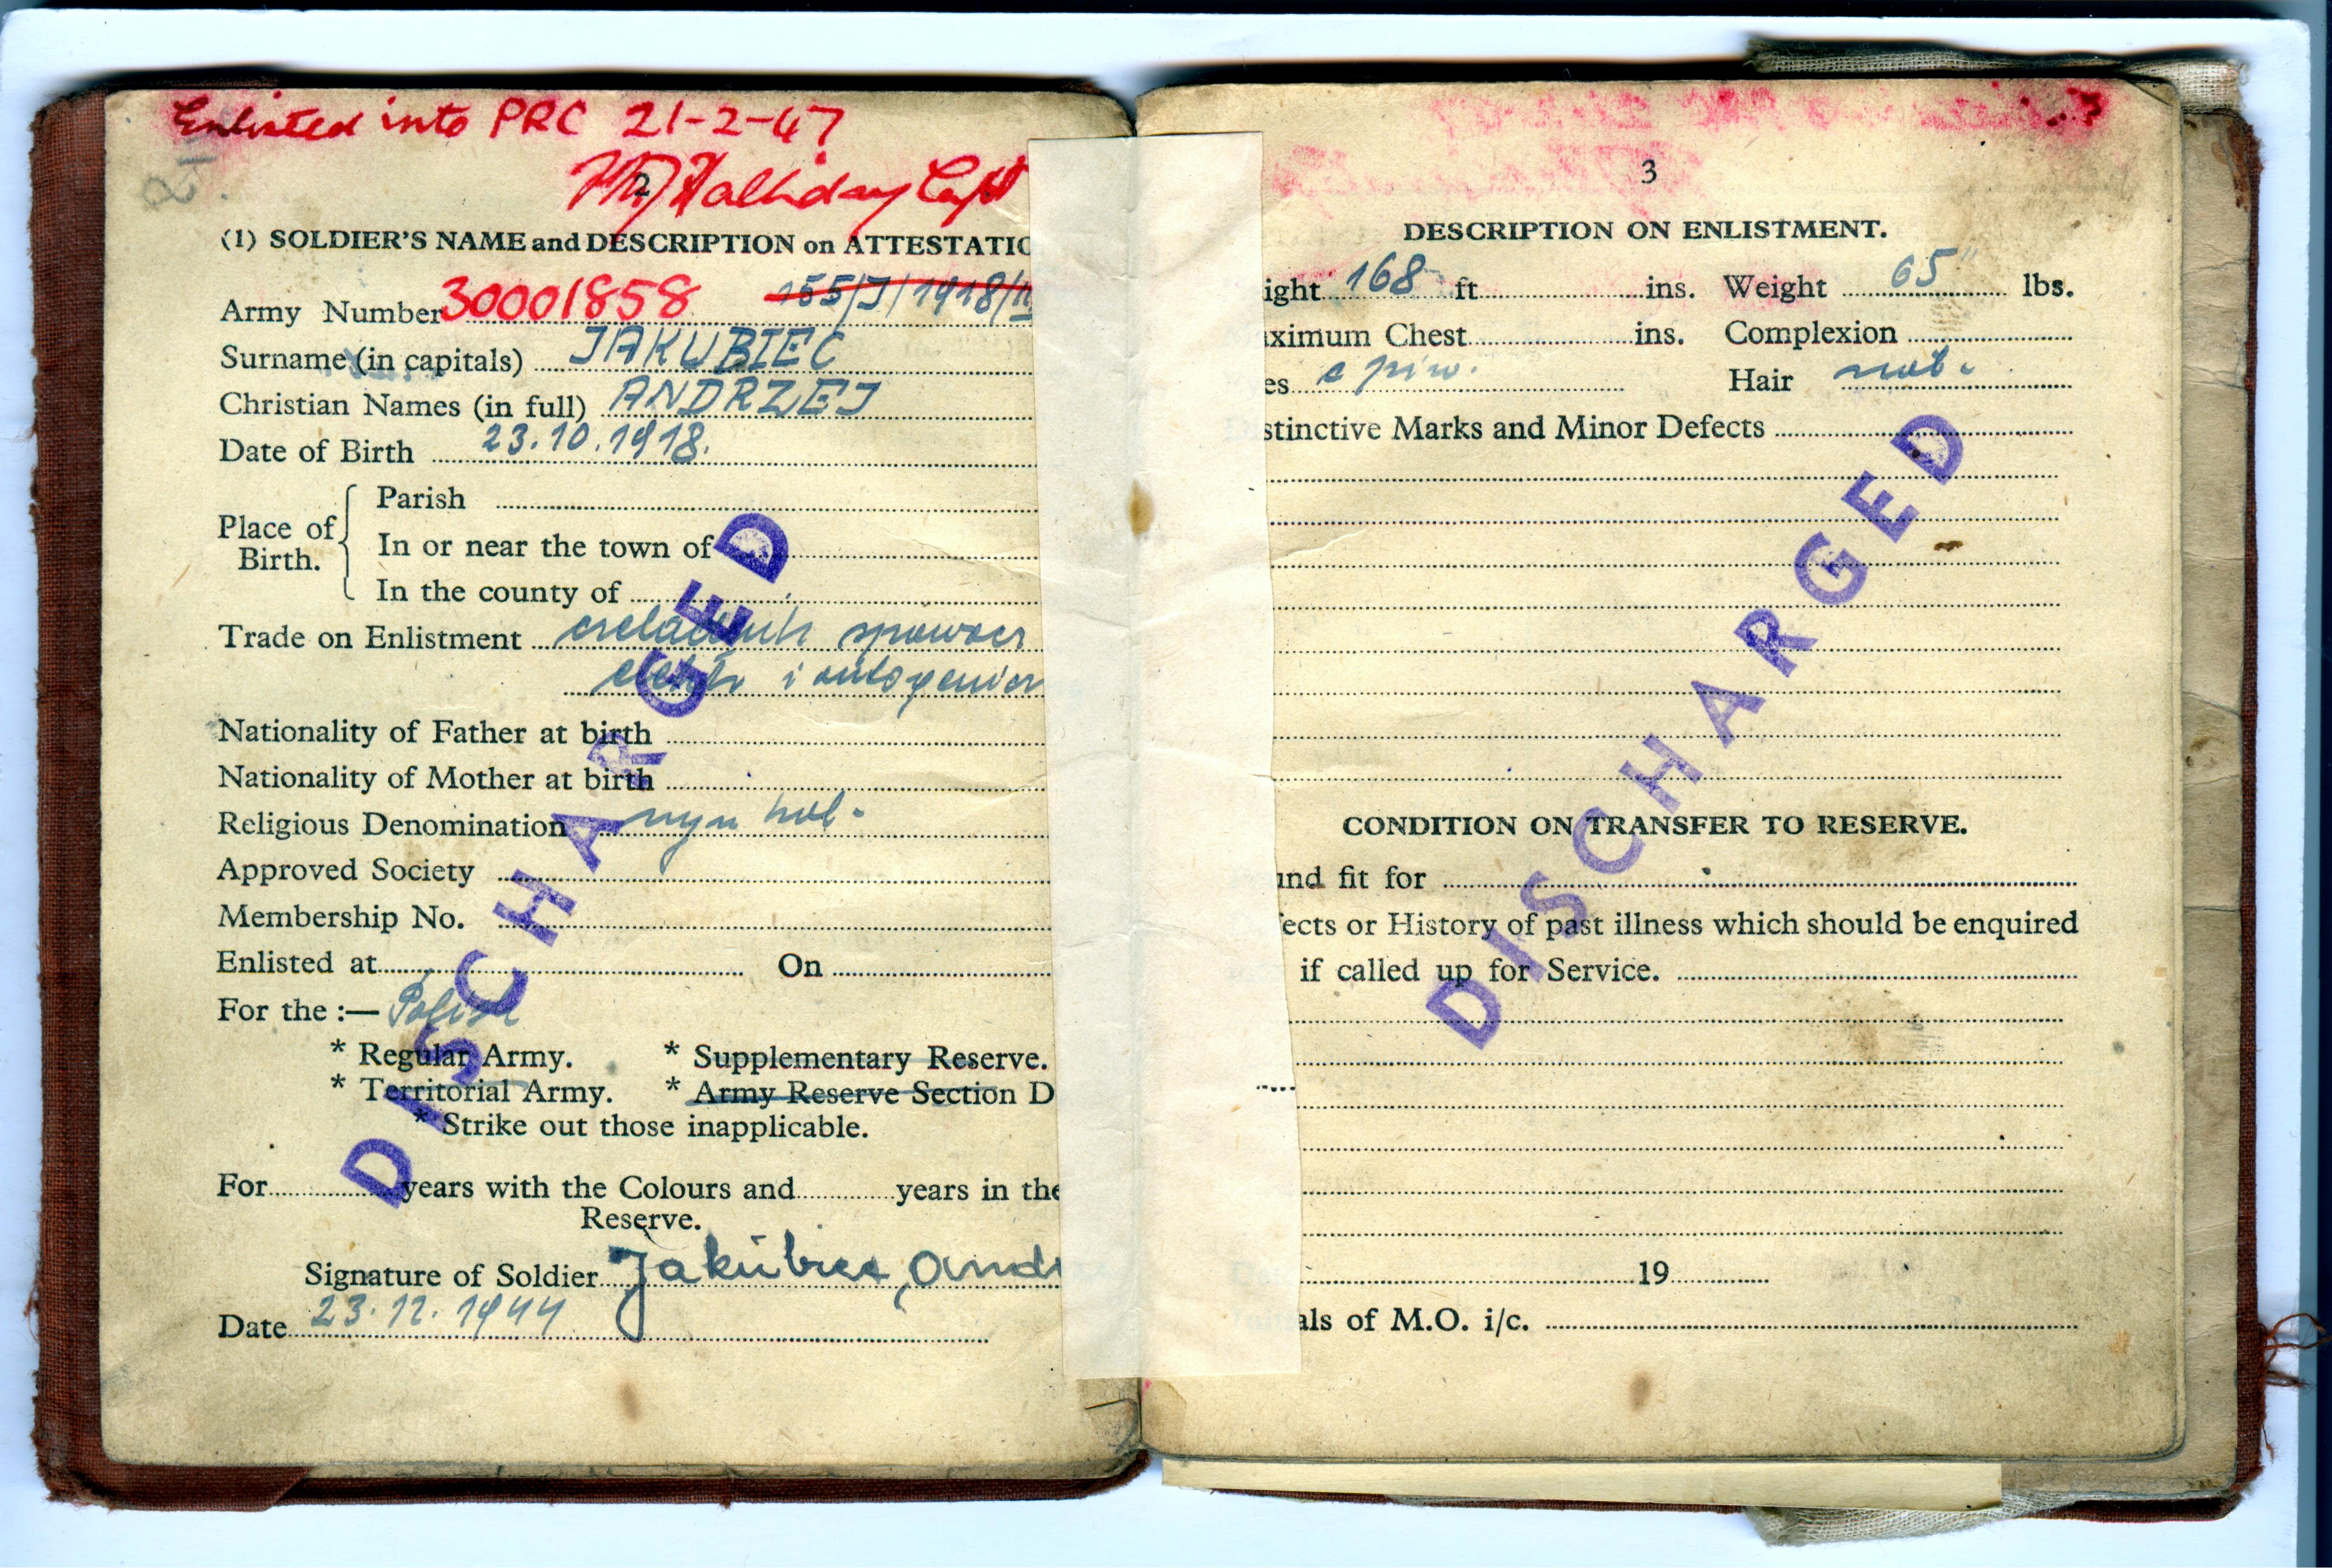 Enlisted into PRC 21-2-47
Halliday Capt
2
(1) SOLDIER'S NAME and DESCRIPTION on ATTESTATIO
Army Number 30001858 155/J/1918/II
Surname (in capitals) JAKUBIEC
Christian Names (in full) ANDRZEJ
Date of Birth 23.10.1918.
Place of Birth.
Parish
In or near the town of
In the county of
Trade on Enlistment czeladnik spawacz
elektr i autogenicz
Nationality of Father at birth
Nationality of Mother at birth
Religious Denomination rzym kat.
Approved Society
Membership No.
Enlisted at On
For the :— Polish
* Regular Army. * Supplementary Reserve.
* Territorial Army. * Army Reserve Section D
* Strike out those inapplicable.
For years with the Colours and years in the
Reserve.
Signature of Soldier Jakubiec, Andr
Date 23.12.1944
DISCHARGED
3
DESCRIPTION ON ENLISTMENT.
ight 168 ft ins. Weight 65 lbs.
ximum Chest ins. Complexion
es piw. Hair
stinctive Marks and Minor Defects
CONDITION ON TRANSFER TO RESERVE.
und fit for
ects or History of past illness which should be enquired
if called up for Service.
19
als of M.O. i/c.
DISCHARGED